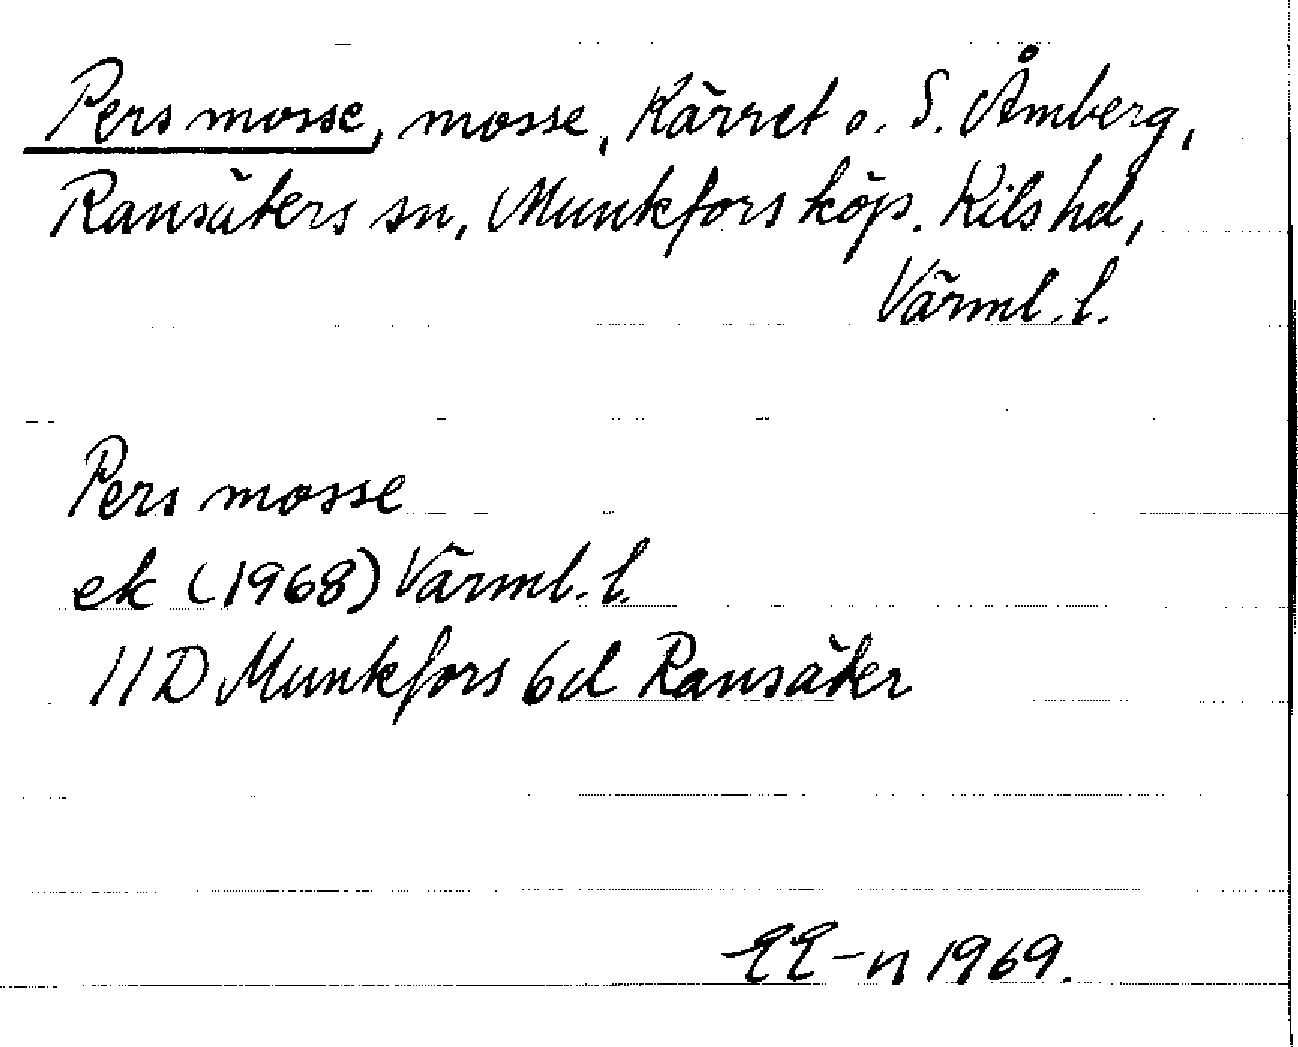 Pers mosse, mosse, Kärret o. S. Åmberg,
Ransäters sn, Munkfors köp. Kils hd,
Värml. l.
Pers mosse
ek (1968) Värml. l.
11D Munkfors 6d Ransäter
EE-n 1969.